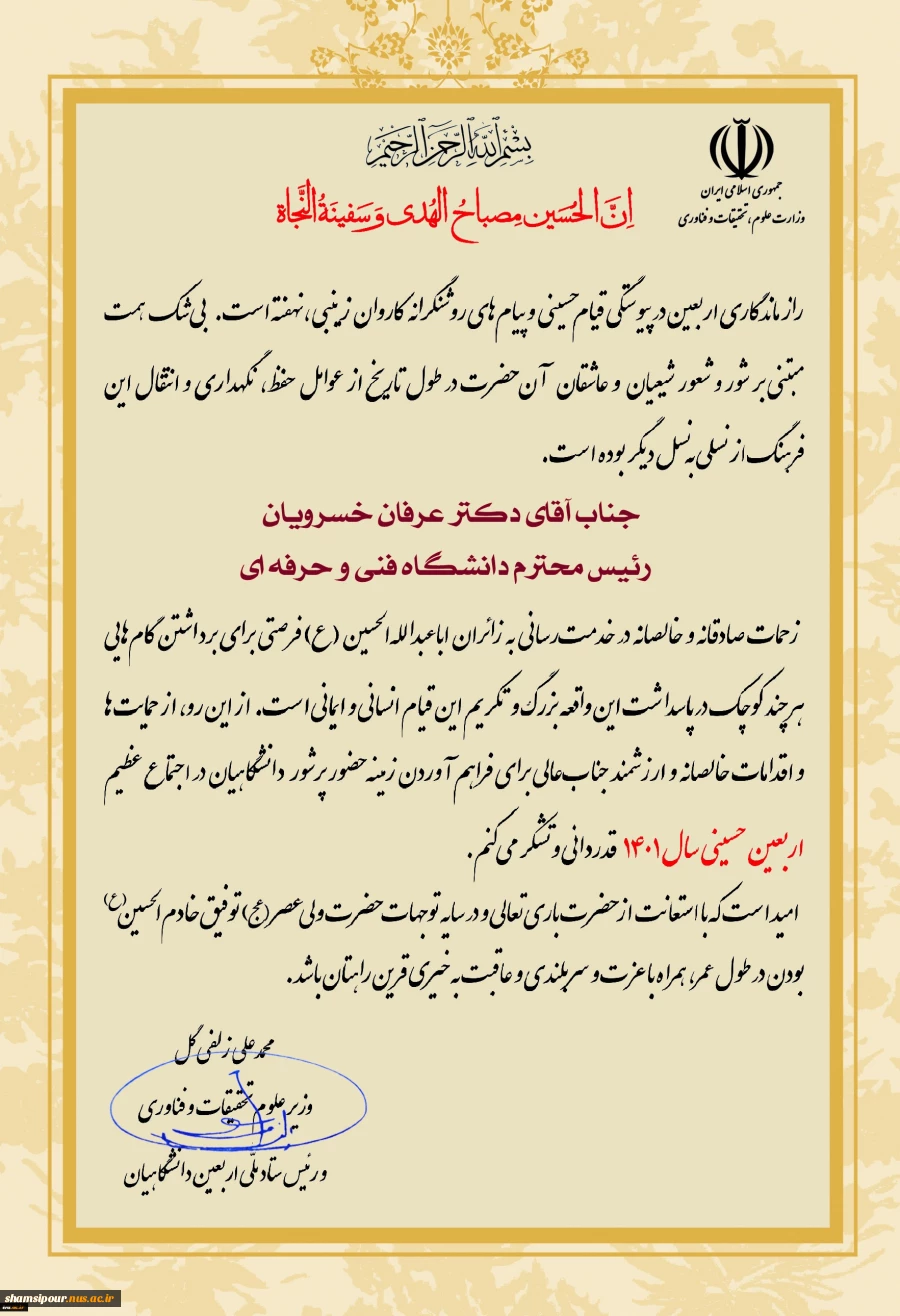 بِسْمِ اللهِ الرَّحْمنِ الرَّحيمِ
جمهوری اسلامی ایران
وزارت علوم، تحقیقات و فناوری
اِنَّ الحُسَین مِصباحُ الهُدی وَ سَفینَةُ النَّجاة
راز ماندگاری اربعین در پیوستگی قیام حسینی و پیام های روشنگرانه کاروان زینبی، نهفته است. بی شک همت
مبتنی بر شور و شعور شیعیان و عاشقان آن حضرت در طول تاریخ از عوامل حفظ، نگهداری و انتقال این
فرهنگ از نسلی به نسل دیگر بوده است.
جناب آقای دکتر عرفان خسرویان
رئیس محترم دانشگاه فنی و حرفه ای
زحمات صادقانه و خالصانه در خدمت رسانی به زائران اباعبدالله الحسین (ع) فرصتی برای برداشتن گام هایی
هر چند کوچک در پاسداشت این واقعه بزرگ و تکریم این قیام انسانی و ایمانی است. از این رو، از حمایت ها
و اقدامات خالصانه و ارزشمند جناب عالی برای فراهم آوردن زمینه حضور پرشور دانشگاهیان در اجتماع عظیم
اربعین حسینی سال ۱۴۰۱ قدردانی و تشکر می کنم.
امید است که با استعانت از حضرت باری تعالی و در سایه توجهات حضرت ولی عصر (عج) توفیق خادم الحسین (ع)
بودن در طول عمر، همراه با عزت و سربلندی و عاقبت به خیری قرین راهتان باشد.
محمد علی زلفی گل
وزیر علوم تحقیقات و فناوری
و رئیس ستاد ملّی اربعین دانشگاهیان
shamsipour.nus.ac.ir